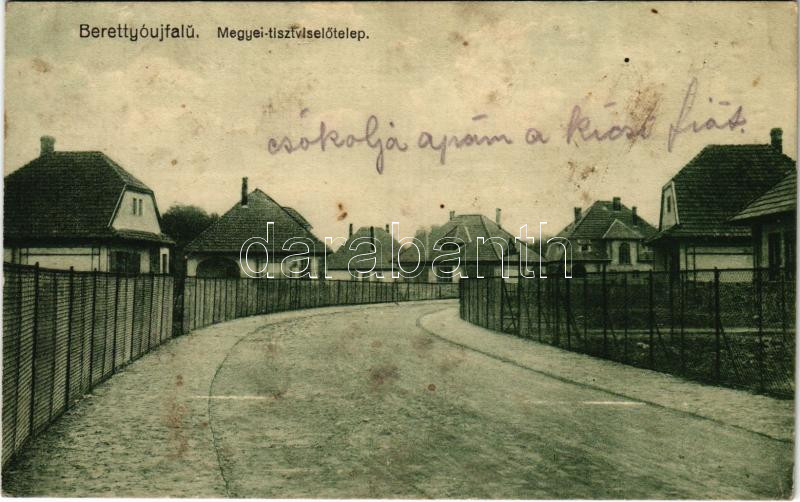 Berettyóujfalŭ. Megyei-tisztviselőtelep.
csókoljá apám a kicsi fiát.
darabanth.com